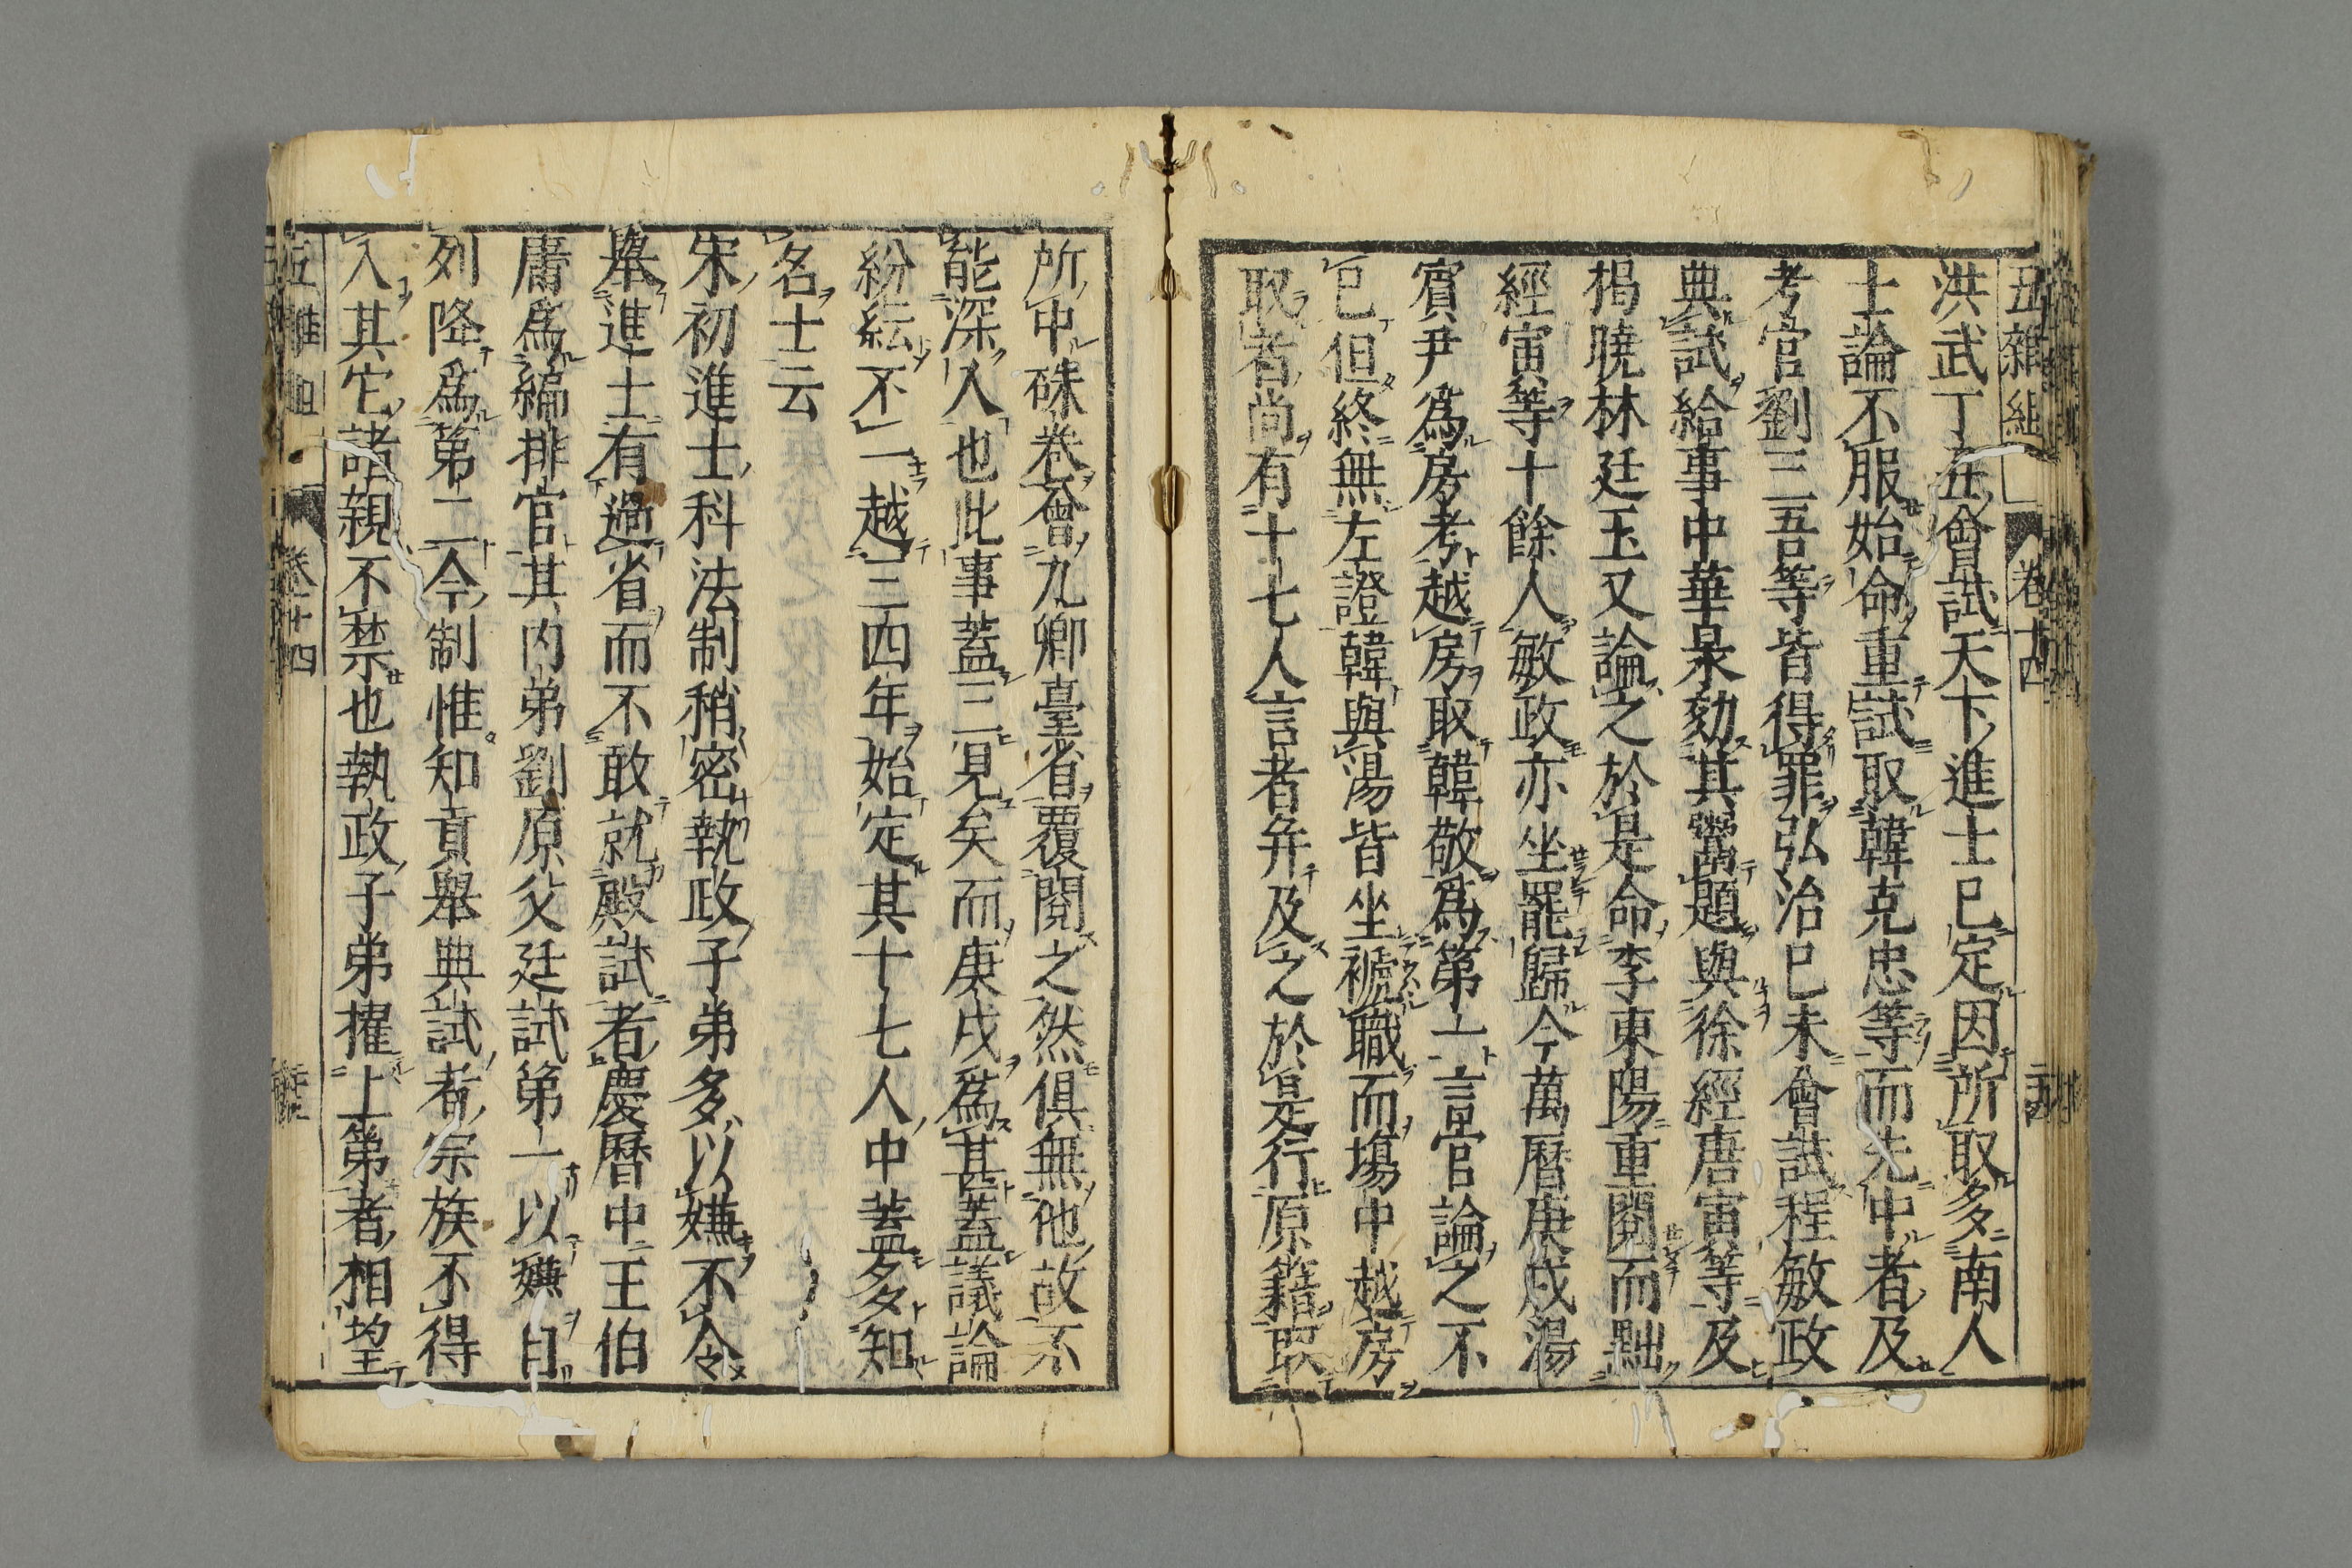 五雜組 卷十四
洪武丁丑會試天下進士已定因所取多南人
士論不服始命重試取韓克忠等而先中者及
考官劉三吾等皆得罪弘治已未會試程敏政
典試給事中華㫤劾其鬻題與徐經唐寅等及
揭曉林廷玉又論之於是命李東陽重閱而黜
經寅等十餘人敏政亦坐罷歸今萬曆庚戌湯
賓尹爲房考越房取韓敬爲第一言官論之不
已但終無左證韓與湯皆坐褫職而塲中越房
取者尚有十七人言者弁及之於是行原籍取
所中硃卷會九卿臺省覆閱之然俱無他故不
能深入也此事蓋三見矣而庚戌爲甚蓋議論
紛紜不一越三四年始定其十七人中蓋多知
名士云
宋初進士科法制稍密執政子弟多以嫌不令
舉進士有過省而不敢就殿試者慶曆中王伯
庸爲編排官其内弟劉原父廷試第一以嫌自
列降爲第二今制惟知貢舉典試者宗族不得
入其它諸親不禁也執政子弟擢上第者相望
五雜組 卷十四